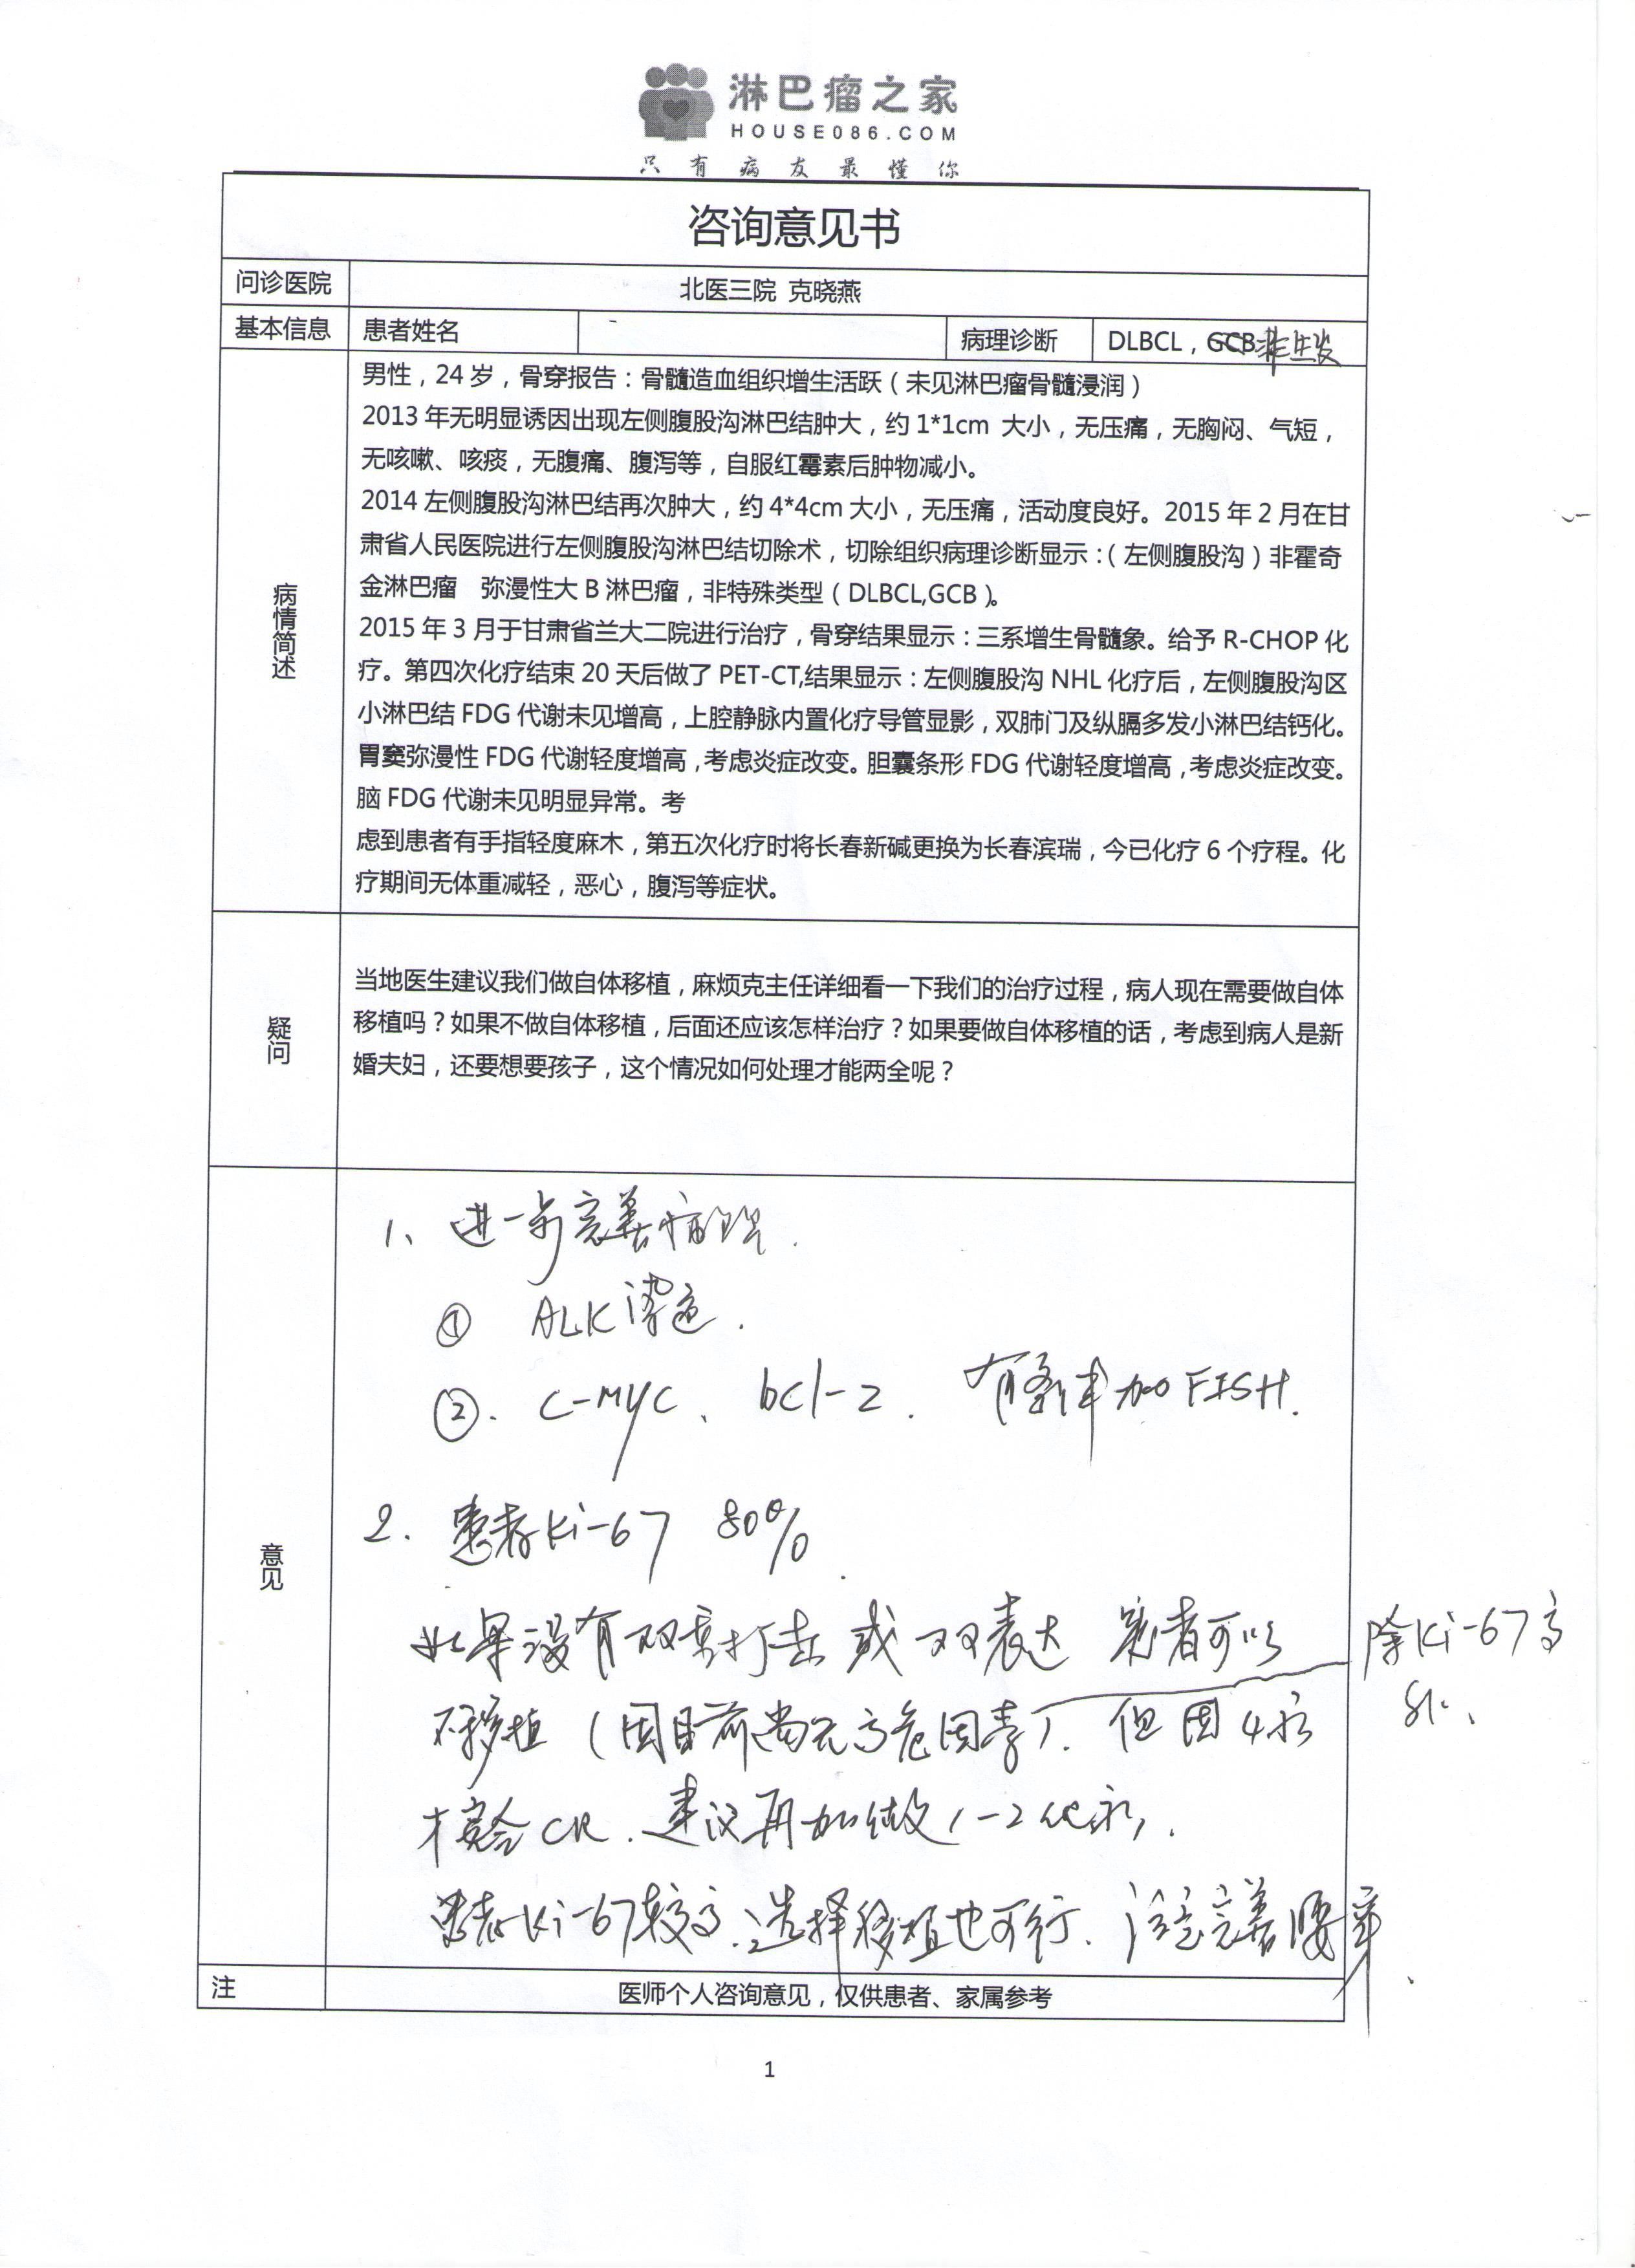 淋巴瘤之家
HOUSE086.COM
只有病友最懂你
咨询意见书
问诊医院 北医三院 克晓燕
基本信息 患者姓名 病理诊断 DLBCL，GCB 非生发
病情简述
男性，24岁，骨穿报告：骨髓造血组织增生活跃（未见淋巴瘤骨髓浸润）
2013年无明显诱因出现左侧腹股沟淋巴结肿大，约1*1cm 大小，无压痛，无胸闷、气短，
无咳嗽、咳痰，无腹痛、腹泻等，自服红霉素后肿物减小。
2014左侧腹股沟淋巴结再次肿大，约4*4cm大小，无压痛，活动度良好。2015年2月在甘
肃省人民医院进行左侧腹股沟淋巴结切除术，切除组织病理诊断显示：（左侧腹股沟）非霍奇
金淋巴瘤 弥漫性大B淋巴瘤，非特殊类型（DLBCL,GCB）。
2015年3月于甘肃省兰大二院进行治疗，骨穿结果显示：三系增生骨髓象。给予R-CHOP化
疗。第四次化疗结束20天后做了PET-CT,结果显示：左侧腹股沟NHL化疗后，左侧腹股沟区
小淋巴结FDG代谢未见增高，上腔静脉内置化疗导管显影，双肺门及纵膈多发小淋巴结钙化。
胃窦弥漫性FDG代谢轻度增高，考虑炎症改变。胆囊条形FDG代谢轻度增高，考虑炎症改变。
脑FDG代谢未见明显异常。考
虑到患者有手指轻度麻木，第五次化疗时将长春新碱更换为长春滨瑞，今已化疗6个疗程。化
疗期间无体重减轻，恶心，腹泻等症状。
疑问
当地医生建议我们做自体移植，麻烦克主任详细看一下我们的治疗过程，病人现在需要做自体
移植吗？如果不做自体移植，后面还应该怎样治疗？如果要做自体移植的话，考虑到病人是新
婚夫妇，还要想要孩子，这个情况如何处理才能两全呢？
意见
1、进一步完善病理.
① ALK染色.
②. C-MYC、bcl-2. 有条件加FISH.
2. 患者Ki-67 80%.
如果没有双重打击或双表达 患者可以
除Ki-67高
外、
不移植（因目前尚无高危因素）. 但因4次
才完全CR. 建议再加做1-2化疗.
患者Ki-67较高.选择移植也可行. 注意完善腰穿.
注 医师个人咨询意见，仅供患者、家属参考
1